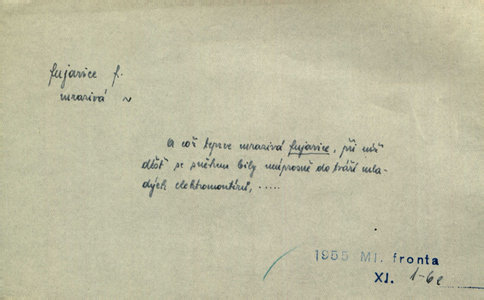 fujavice f.
mrazivá ~
A což teprve mrazivá fujavice, při níž
déšť se sněhem bily neúprosně do tváří mla-
dých elektromontérů, .....
1955 Ml. fronta
XI. 1-6e